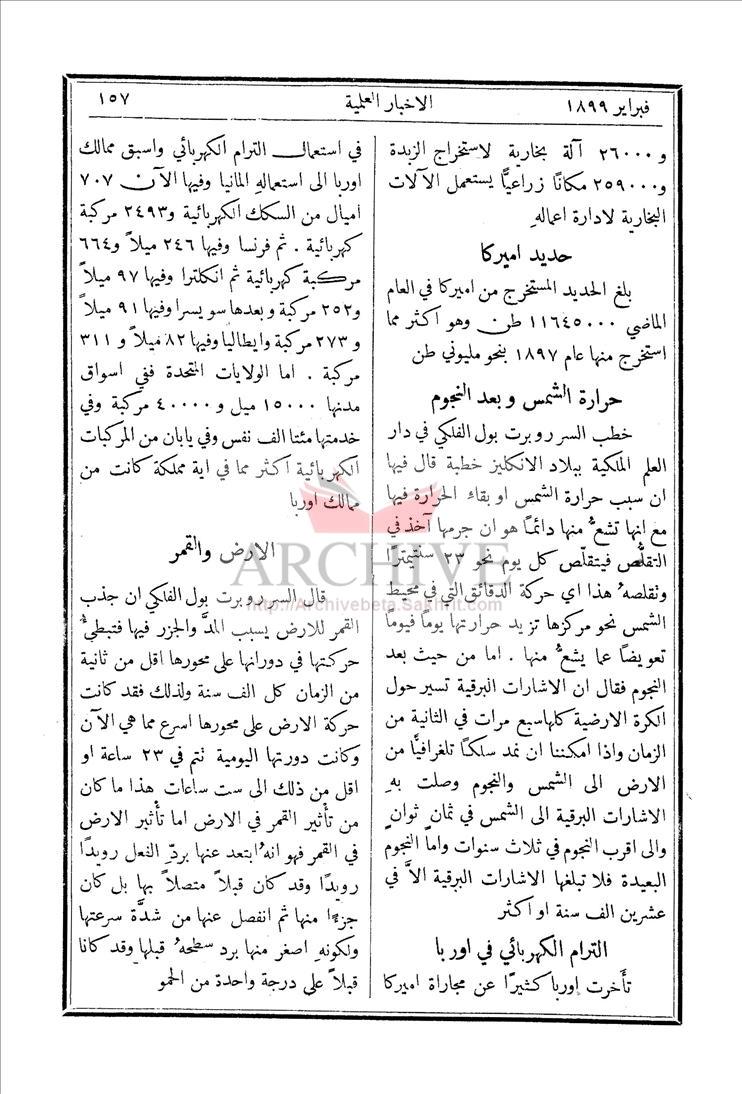 فبراير ١٨٩٩
الاخبار العلمية
١٥٧
و ٢٦٠٠٠ آلة بخارية لاستخراج الزبدة
و ٢٥٩٠٠٠ مكانًا زراعيًّا يستعمل الآلات
البخارية لادارة اعمالهِ
حديد اميركا
بلغ الحديد المستخرج من اميركا في العام
الماضي ١١٦٤٥٠٠٠ طن وهو اكثر مما
استخرج منها عام ١٨٩٧ بنحو مليوني طن
حرارة الشمس وبعد النجوم
خطب السر روبرت بول الفلكي في دار
العلم الملكية ببلاد الانكليز خطبة قال فيها
ان سبب حرارة الشمس او بقاء الحرارة فيها
مع انها تشعُّ منها دائمًا هو ان جرمها آخذ في
التقلُّص فيتقلّص كل يوم نحو ٢٣ سنتيمترًا
وتقلصهُ هذا اي حركة الدقائق التي في محيط
الشمس نحو مركزها تزيد حرارتها يومًا فيومًا
تعويضًا عما يشعُّ منها . اما من حيث بعد
النجوم فقال ان الاشارات البرقية تسير حول
الكرة الارضية كلها سبع مرات في الثانية من
الزمان واذا امكننا ان نمد سلكًا تلغرافيًّا من
الارض الى الشمس والنجوم وصلت بهِ
الاشارات البرقية الى الشمس في ثمان ثوانٍ
والى اقرب النجوم في ثلاث سنوات واما النجوم
البعيدة فلا تبلغها الاشارات البرقية الاَّ في
عشرين الف سنة او اكثر
الترام الكهربائي في اوربا
تأخرت اوربا كثيرًا عن مجاراة اميركا
في استعمال الترام الكهربائي واسبق ممالك
اوربا الى استعمالهِ المانيا وفيها الآن ٧٠٧
اميال من السكك الكهربائية و٢٤٩٣ مركبة
كهربائية . ثم فرنسا وفيها ٢٤٦ ميلاً و٦٦٤
مركبة كهربائية ثم انكلترا وفيها ٩٧ ميلاً
و٢٥٢ مركبة وبعدها سويسرا وفيها ٩١ ميلاً
و ٢٧٣ مركبة وايطاليا وفيها ٨٢ ميلاً و ٣١١
مركبة . اما الولايات المتحدة ففي اسواق
مدنها ١٥٠٠٠ ميل و ٤٠٠٠٠ مركبة وفي
خدمتها مئتا الف نفس وفي يابان من المركبات
الكهربائية اكثر مما في اية مملكة كانت من
ممالك اوربا
الارض والقمر
قال السر روبرت بول الفلكي ان جذب
القمر للارض يسبب المدَّ والجزر فيها فتبطئُ
حركتها في دورانها على محورها اقل من ثانية
من الزمان كل الف سنة ولذلك فقد كانت
حركة الارض على محورها اسرع مما هي الآن
وكانت دورتها اليومية تتم في ٢٣ ساعة او
اقل من ذلك الى ست ساعات هذا ما كان
من تأثير القمر في الارض اما تأثير الارض
في القمر فهو انهُ ابتعد عنها بردّ الفعل رويدًا
رويدًا وقد كان قبلاً متصلاً بها بل كان
جزءًا منها ثم انفصل عنها من شدَّة سرعتها
ولكونهِ اصغر منها برد سطحهُ قبلها وقد كانا
قبلاً على درجة واحدة من الحمو
ARCHIVE
http://Archivebeta.Sakhrit.com